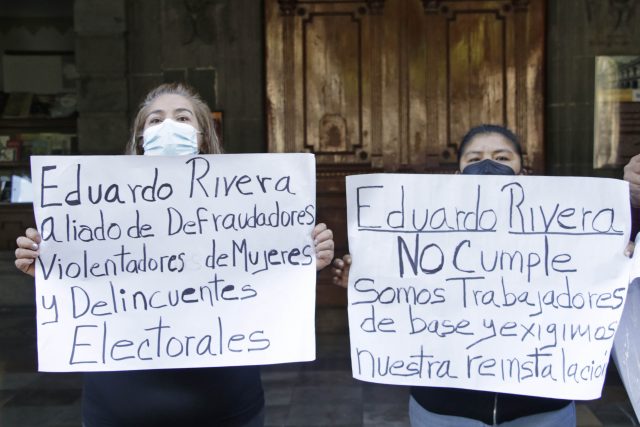 Eduardo Rivera
Aliado de Defraudadores
Violentadores de Mujeres
y Delincuentes
Electorales
Eduardo Rivera
NO Cumple
Somos Trabajadores
de base y exigimos
nuestra reinstalación